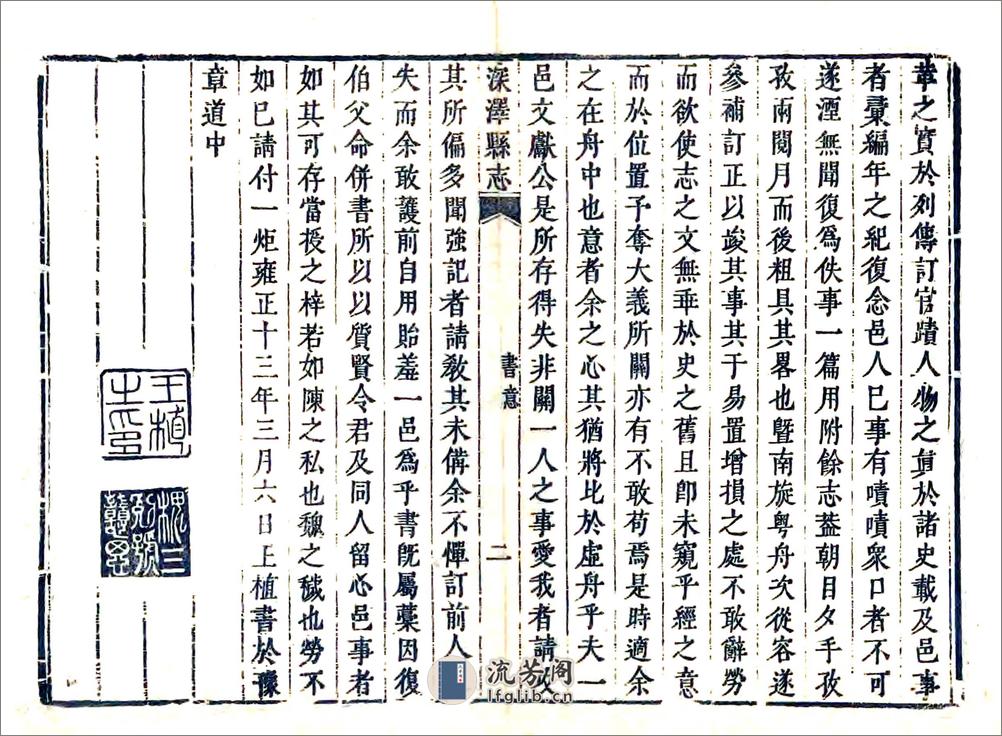 華之實於列傳訂官蹟人物之眞於諸史載及邑事
者彙編年之紀復念邑人巳事有嘖嘖衆口者不可
遂湮無聞復爲佚事一篇用附餘志葢朝目夕手孜
孜兩閱月而後粗具其畧也暨南旋粤舟次從容遂
參補訂正以竣其事其于易置增損之處不敢辭勞
而欲使志之文無乖於史之舊且卽未窺乎經之意
而於位置予奪大義所關亦有不敢苟焉是時適余
之在舟中也意者余之心其猶將比於虛舟乎夫一
邑文獻公是所存得失非關一人之事愛我者請攻
深澤縣志
書意
二
其所偏多聞強記者請敎其未備余不憚訂前人
失而余敢護前自用貽羞一邑爲乎書旣屬藁因復
伯父命併書所以以質賢令君及同人留心邑事者
如其可存當授之梓若如陳之私也魏之穢也勞不
如巳請付一炬雍正十三年三月六日上植書於豫
章道中
王植之印
流芳阁
lfglib.cn